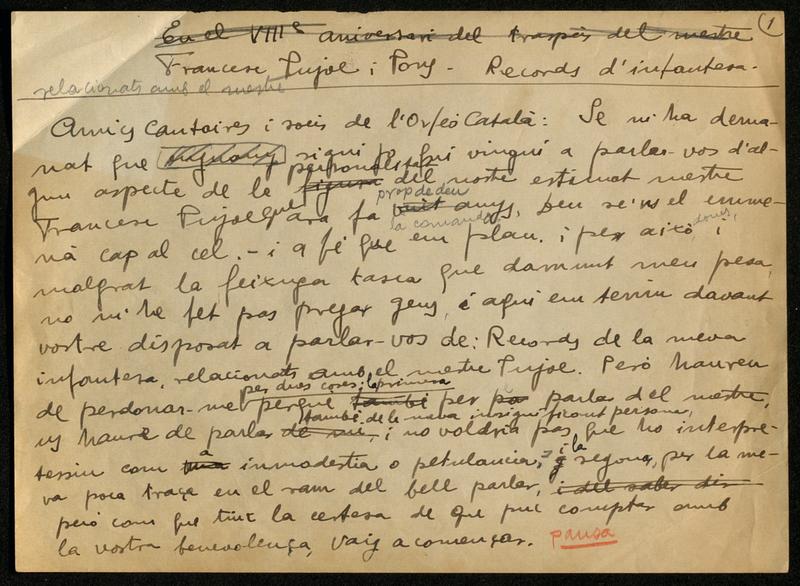 (1
En el VIIIè aniversari del traspàs del mestre
Francesc Pujol i Pons - Records d'infantesa -
relacionats amb el mestre
Amics Cantaires i socis de l'Orfeó Català: Se m'ha dema-
nat que sigui jo qui vingui a parlar-vos d'al-
personalitat
gun aspecte de la figura del nostre estimat mestre
prop de deu
Francesc Pujol que ara fa vuit anys, Deu se'ns el emme-
la comanda
nà cap al cel. - i a fé que em plau. i per això, doncs, i
malgrat la feixuga tasca que damunt meu pesa,
no m'he fet pas pregar gens, i aquí em teniu davant
vostre disposat a parlar-vos de: Records de la meva
infantesa, relacionats amb el mestre Pujol. Però haureu
per dues coses: la primera
de perdonar-me perquè també per parlar del mestre,
també de la meva insignificant persona,
us hauré de parlar de mi, i no voldria pas que ho interpre-
a i la
tessiu com inmodestia o petulancia, segona, per la me-
va poca traça en el ram del bell parlar, i del saber dir
però com que tinc la certesa de que puc comptar amb
la vostra benevolença, vaig a començar. pausa